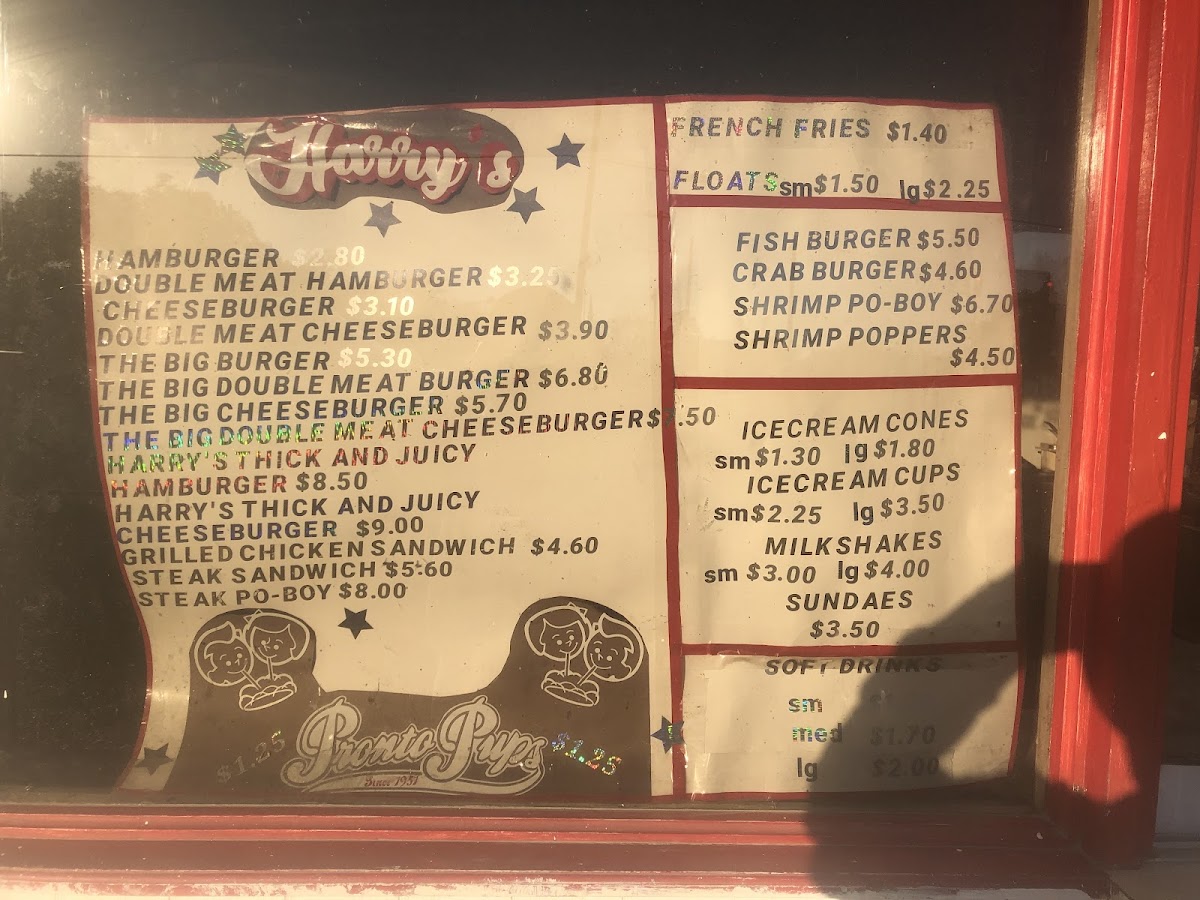 Harry's
HAMBURGER $2.80
DOUBLE MEAT HAMBURGER $3.25
CHEESEBURGER $3.10
DOUBLE MEAT CHEESEBURGER $3.90
THE BIG BURGER $5.30
THE BIG DOUBLE MEAT BURGER $6.80
THE BIG CHEESEBURGER $5.70
THE BIG DOUBLE MEAT CHEESEBURGER
HARRY'S THICK AND JUICY
HAMBURGER $8.50
HARRY'S THICK AND JUICY
CHEESEBURGER $9.00
GRILLED CHICKEN SANDWICH $4.60
STEAK SANDWICH $5.60
STEAK PO-BOY $8.00
$1.25 Pronto Pups $1.25
Since 1951
FRENCH FRIES $1.40
FLOATS sm $1.50 lg $2.25
FISH BURGER $5.50
CRAB BURGER $4.60
SHRIMP PO-BOY $6.70
SHRIMP POPPERS
$4.50
ICECREAM CONES
sm $1.30 lg $1.80
ICECREAM CUPS
sm $2.25 lg $3.50
MILKSHAKES
sm $3.00 lg $4.00
SUNDAES
$3.50
SOFT DRINKS
sm
med $1.70
lg $2.00